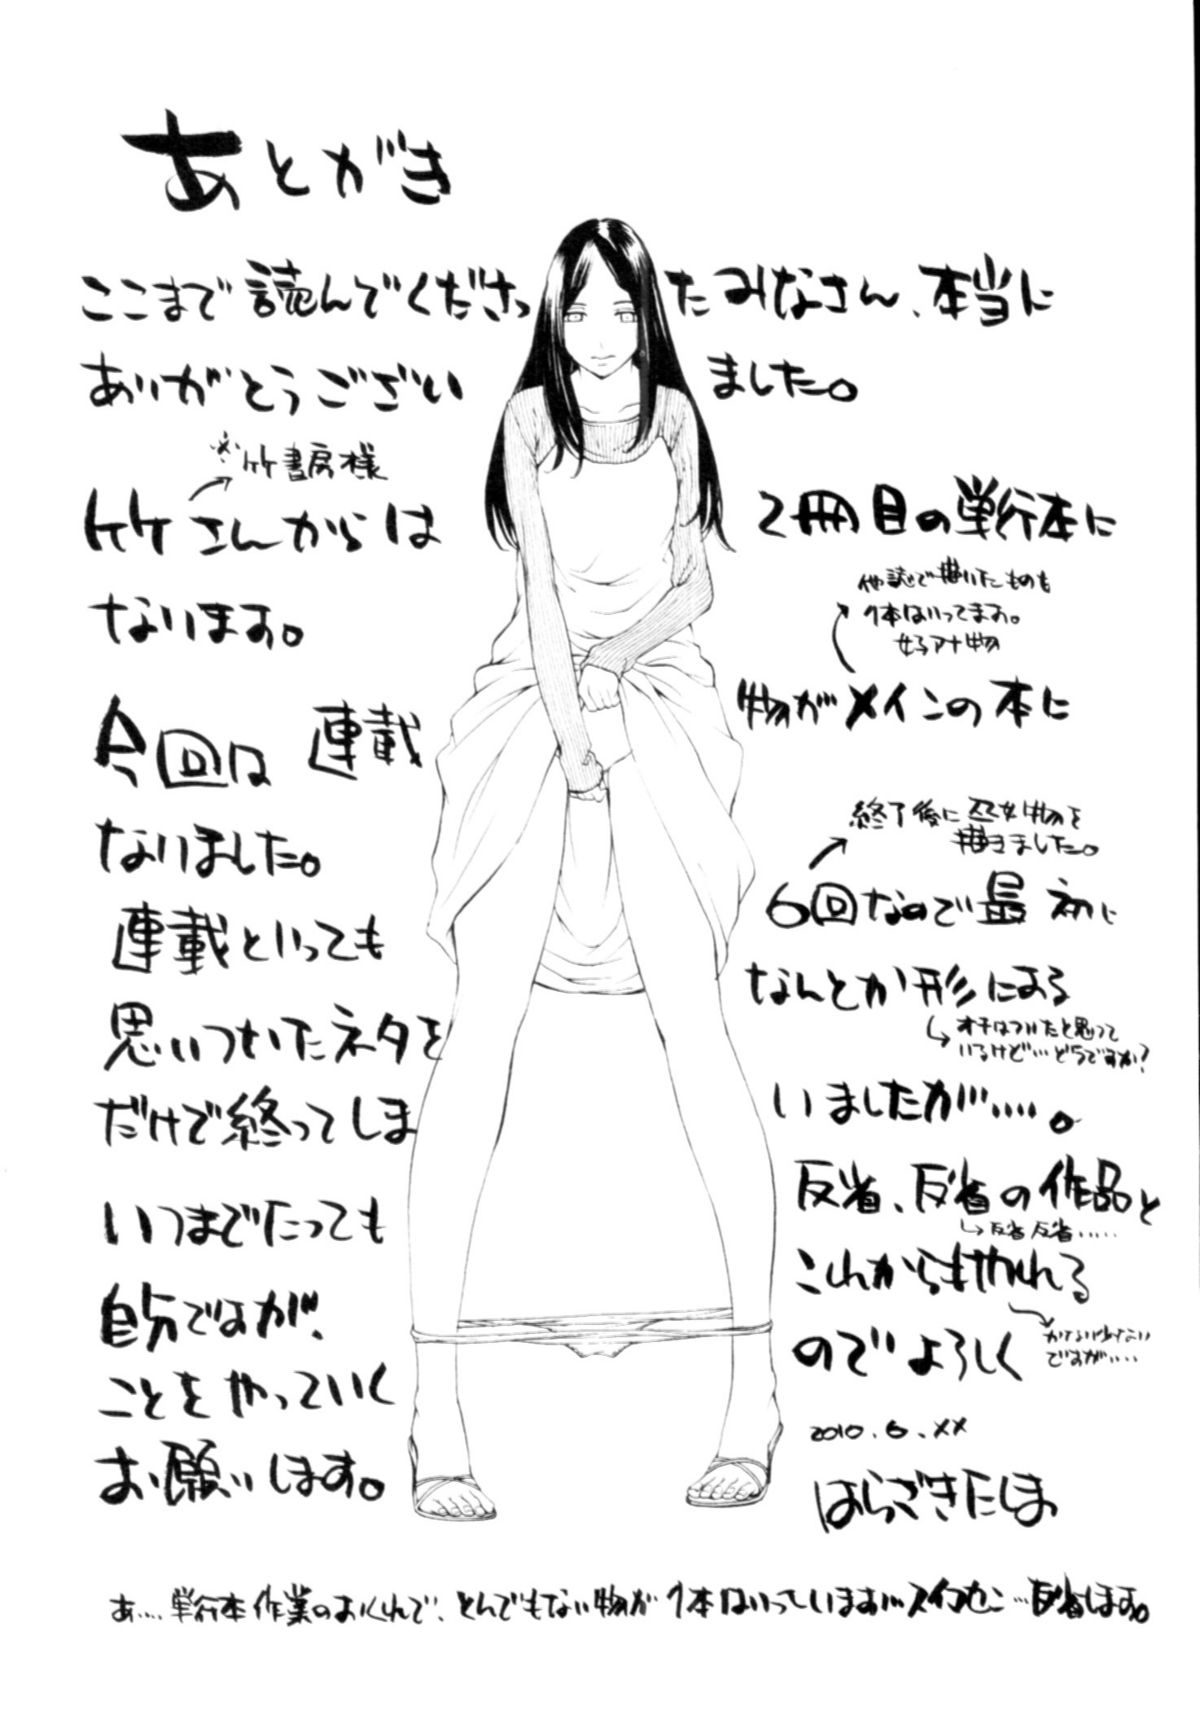 あとがき
ここまで読んでくださったみなさん、本当に
ありがとうございました。
※竹書房様
竹さんからは2冊目の単行本に
なります。
他誌で描いたものも
1本はいってます。
女子アナ物
今回は連載物がメインの本に
なりました。
終了後に巫女物を
描きました。
連載といっても6回なので最初に
思いついたネタをなんとか形にする
オチはついたと思って
いるけど…どうですか?
だけで終ってしまいましたが…。
いつまでたっても反省、反省の作品と
反省反省……
自分ですが、これからもやれる
ことをやっていくのでよろしく
かなり少ない
ですが…
お願いします。
2010.6.××
はらざきたくま
あ…単行本作業のおくれで、とんでもない物が1本はいっています…スイマセン…反省します。